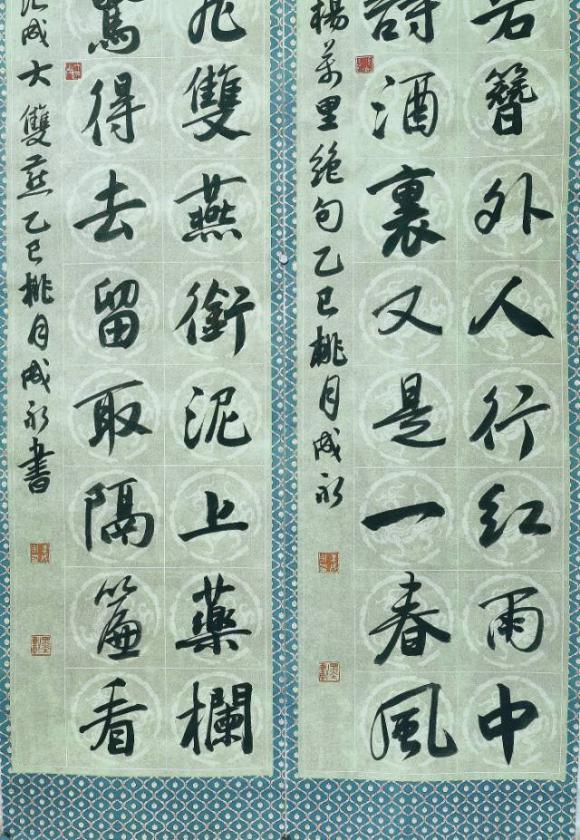 簪外人行紅雨中
詩酒裏又是一春風
楊萬里絕句乙巳桃月成永
飛雙燕銜泥上藥欄
驚得去留取隔簾看
成大雙燕乙巳桃月成永書